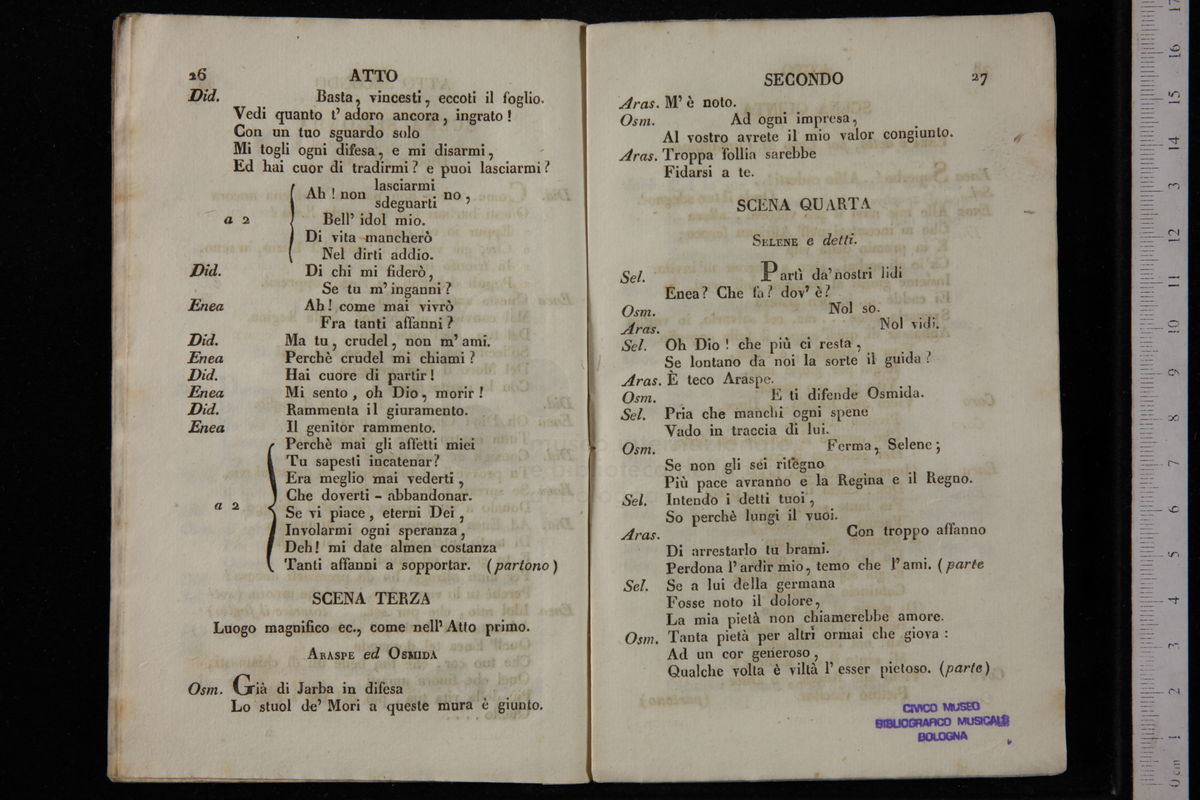 26 ATTO
Did. Basta, vincesti, eccoti il foglio.
Vedi quanto t' adoro ancora, ingrato!
Con un tuo sguardo solo
Mi togli ogni difesa, e mi disarmi,
Ed hai cuor di tradirmi? e puoi lasciarmi?
lasciarmi
Ah! non no,
sdegnarti
a 2 Bell' idol mio.
Di vita mancherò
Nel dirti addio.
Did. Di chi mi fiderò,
Se tu m' inganni?
Enea Ah! come mai vivrò
Fra tanti affanni?
Did. Ma tu, crudel, non m' ami.
Enea Perchè crudel mi chiami?
Did. Hai cuore di partir!
Enea Mi sento, oh Dio, morir!
Did. Rammenta il giuramento.
Enea Il genitor rammento.
Perchè mai gli affetti miei
Tu sapesti incatenar?
Era meglio mai vederti,
Che doverti - abbandonar.
a 2 Se vi piace, eterni Dei,
Involarmi ogni speranza,
Deh! mi date almen costanza
Tanti affanni a sopportar. (partono)
SCENA TERZA
Luogo magnifico ec., come nell' Atto primo.
ARASPE ed OSMIDA
Osm. Già di Jarba in difesa
Lo stuol de' Mori a queste mura è giunto.
SECONDO 27
Aras. M' è noto.
Osm. Ad ogni impresa,
Al vostro avrete il mio valor congiunto.
Aras. Troppa follia sarebbe
Fidarsi a te.
SCENA QUARTA
SELENE e detti.
Sel. Partì da' nostri lidi
Enea? Che fa? dov' è?
Osm. Nol so.
Aras. Nol vidi.
Sel. Oh Dio! che più ci resta,
Se lontano da noi la sorte il guida?
Aras. È teco Araspe.
Osm. E ti difende Osmida.
Sel. Pria che manchi ogni spene
Vado in traccia di lui.
Osm. Ferma, Selene;
Se non gli sei ritegno
Più pace avranno e la Regina e il Regno.
Sel. Intendo i detti tuoi,
So perchè lungi il vuoi.
Aras. Con troppo affanno
Di arrestarlo tu brami.
Perdona l' ardir mio, temo che l' ami. (parte
Sel. Se a lui della germana
Fosse noto il dolore,
La mia pietà non chiamerebbe amore.
Osm. Tanta pietà per altri ormai che giova:
Ad un cor generoso,
Qualche volta è viltà l' esser pietoso. (parte)
CIVICO MUSEO
BIBLIOGRAFICO MUSICALE
BOLOGNA
0 cm 1 2 3 4 5 6 7 8 9 10 11 12 13 14 15 16 17